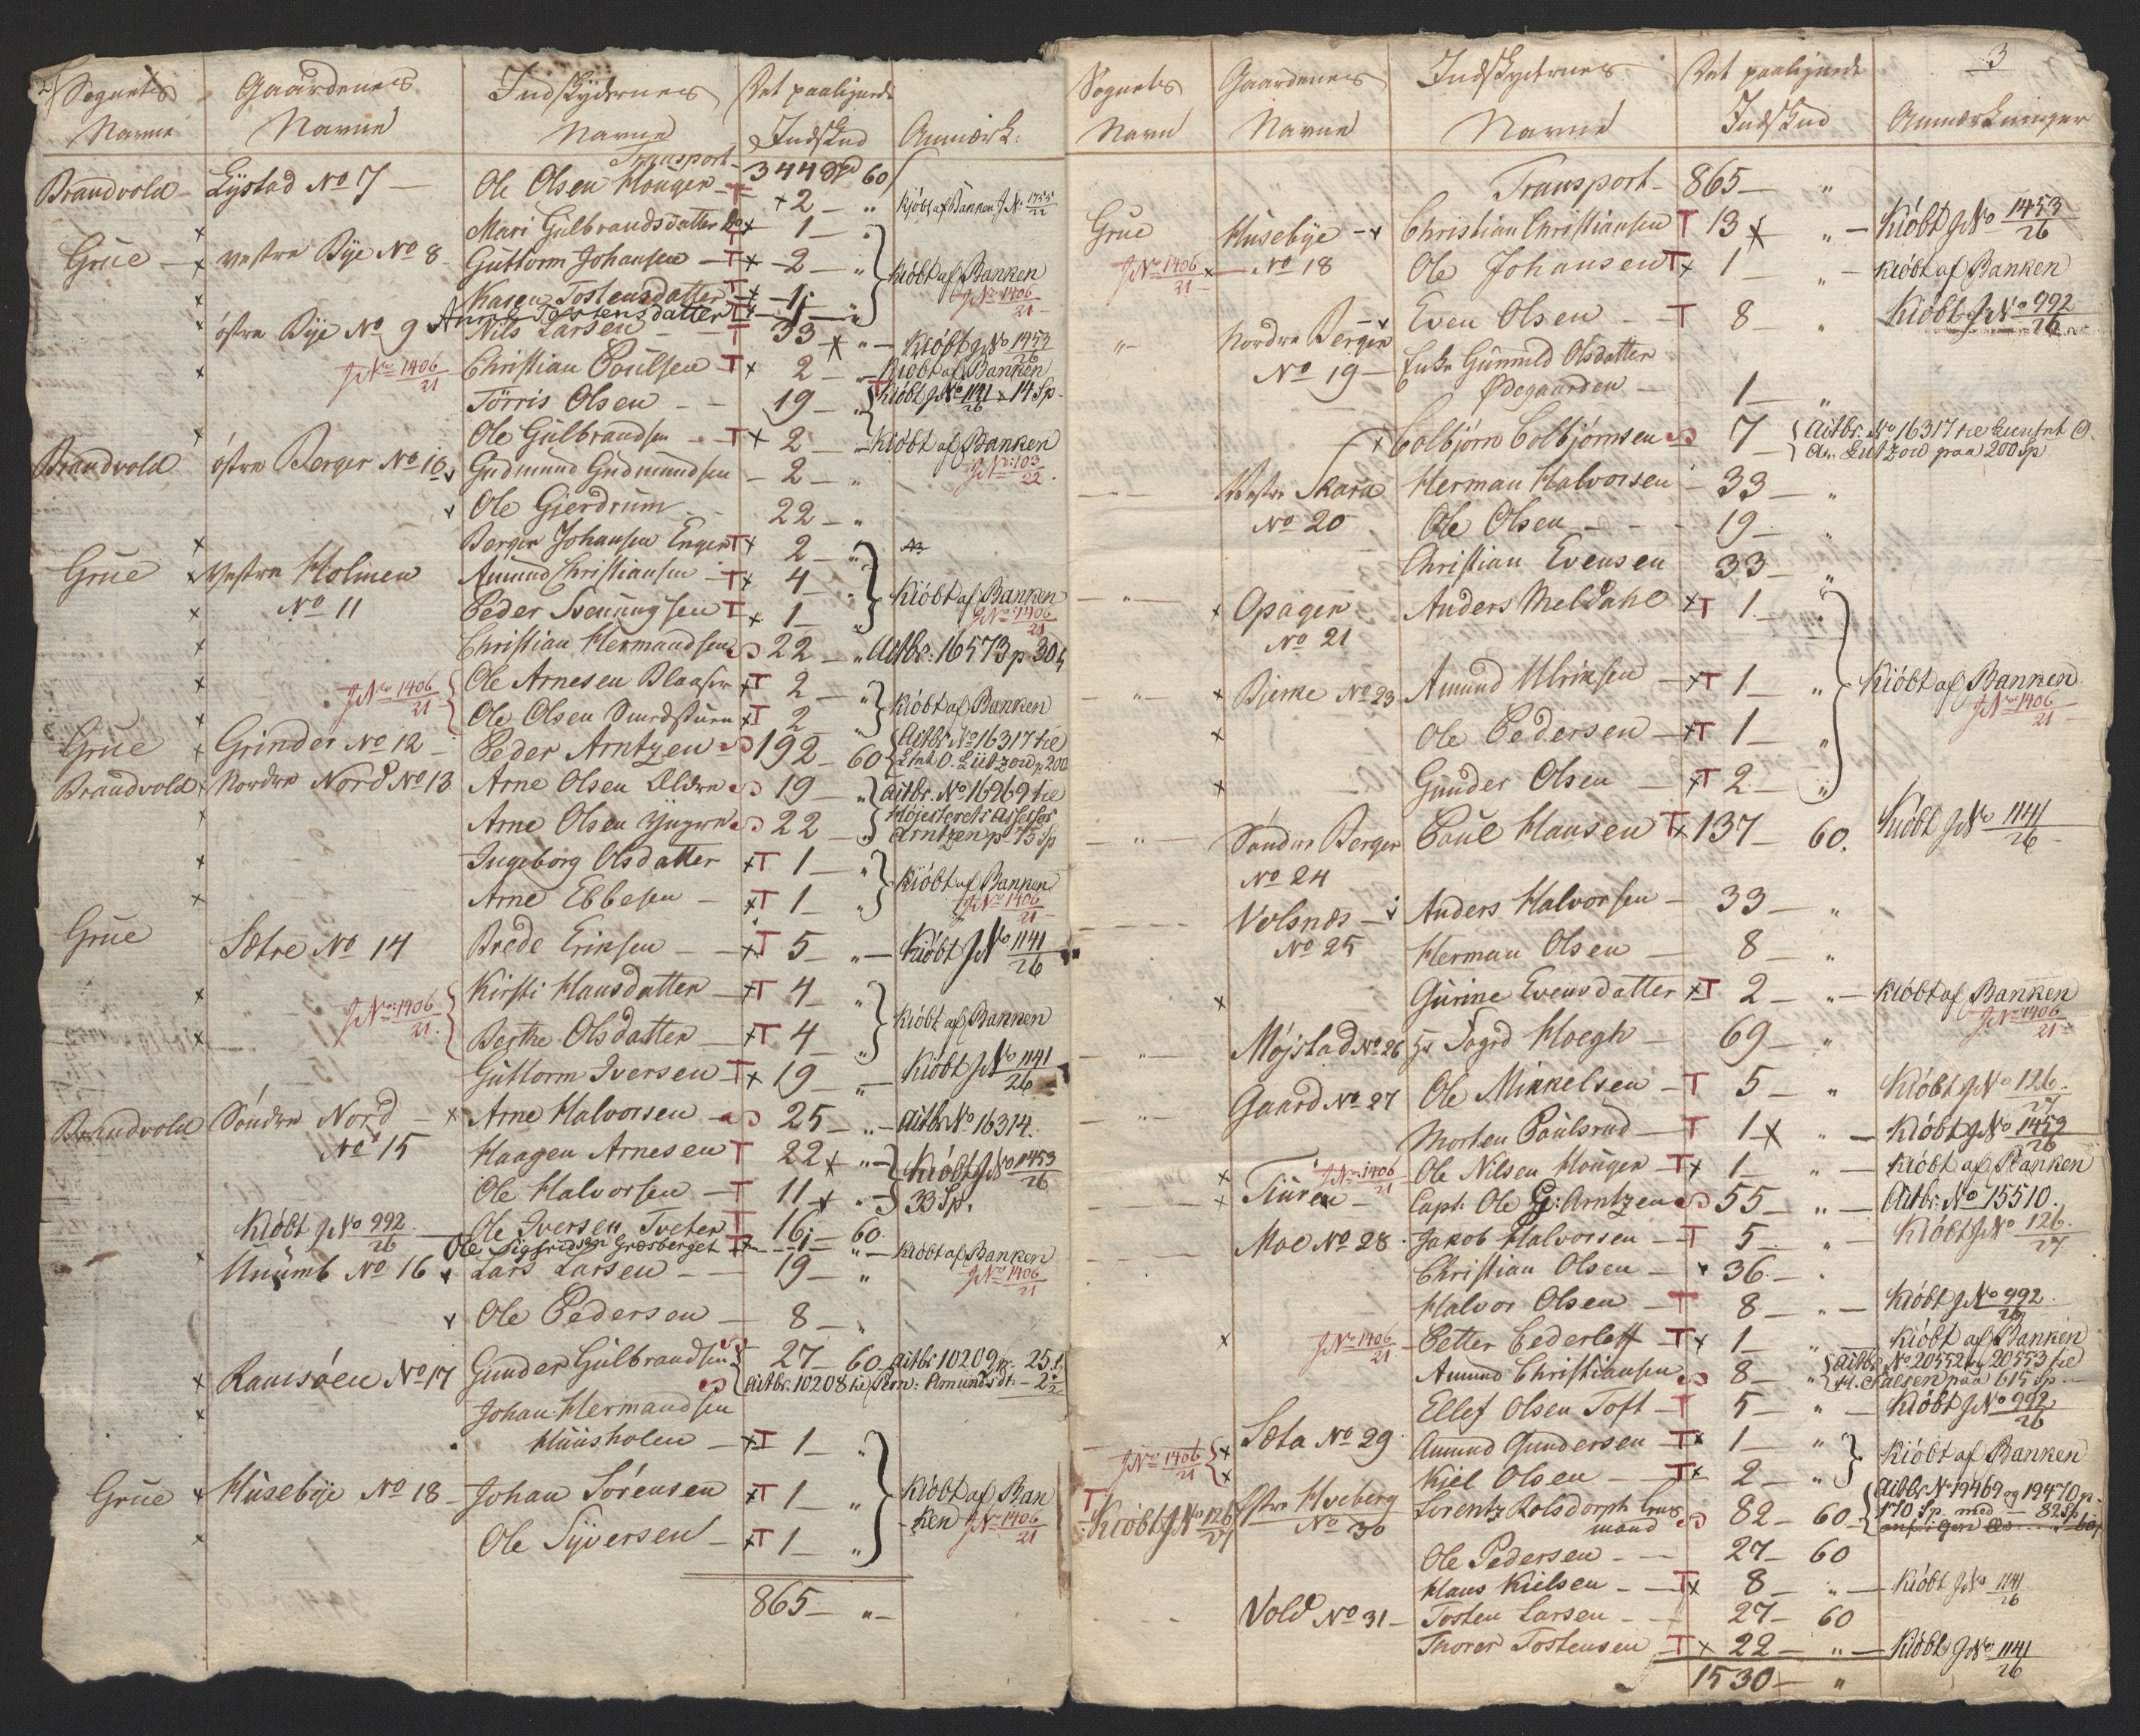 2
Sognets Gaardenes Indskydernes Det paalignede
Navne Navne Navne Indskud Anmærk:
Transport 344 Spd 60
Brandvold Lystad No 7 Ole Olsen Houger T +2 " Kjøbt af Banken J.No 1755/22
Mari Gulbrandsdatter Do x 1 "
Grue x vestre Bye No 8 Guttorm Johansen T x 2 " Kiøbt af Banken
Karen Tostensdatter T x 1 " JNo 1406/21
Anne Tostensdatter T x 1 "
x østre Bye No 9 Nils Larsen T 33 x " Kiøbt JNo 1453/26
x JNo 1406/21 Christian Poulsen T x 2 Kiøbt af Banken
Törris Olsen 19 " Kiøbt JNo 1141/26 x 14 Sp
x Ole Gulbrandsen T x 2 Kiøbt af Banken
Brandvold østre Berger No 10 Gudmund Gudmundsen 2 " JNo 103/22
Ole Gjerdrum 22 "
x Berger Johansen Enger T x 2 "
Grue x Vestre Holmen Amund Christiansen T x 4 "
x No 11 Peder Svenungsen T x 1 Kiøbt af Banken
JNo 1406/21
x Christian Hermandsen 22 " Actbr: 16573 p 30
x JNo 1406/21 Ole Arnesen Blaaser x T 2 " Kiøbt af Banken
x Ole Olsen x T 2 "
Grue x Grinder No 12 Peder Arntzen 192 60 Actbr No 16317 til
Lnt O. Lützow p 200
Brandvold Nordre Nord No 13 Arne Olsen Ældre 19 " Actbr. No 16969 til
x Arne Olsen Yngre 22 " Højesterets Assessor
Arntzen p 73 Sp
x Ingeborg Olsdatter x T 1 "
x Arne Ebbesen x T 1 " Kiøbt af Banken
JNo 1406/21
Grue Sætre No 14 Brede Eriksen x T 5 " Kiøbt JNo 1141/26
x JNo 1406/21 Kirsti Hansdatter x T 4 " Kiøbt af Banken
x Berthe Olsdatter x T 4 "
Guttorm Iversen T x 19 " Kiøbt JNo 1141/26
Brandvold Søndre Nord x Arne Halvorsen 25 " Actbr No 16314.
No 15 Haagen Arnesen T 22 x " Kiøbt JNo 1453/26
Ole Halvorsen T 11 x " 33 Sp.
Kiøbt JNo 992/26 Ole Iversen Tveter T 16 60
Ole Sigfridsen Græsberget T x 1 " Kiøbt af Banken
x Unumb No 16 Lars Larsen 19 " JNo 1406/21
Ole Pedersen 8 "
x Ramsøen No 17 Gunder Gulbrandsen 27 60 Actbr 10209 p. 25
Actbr. 10208 til Arn: Amunds dt: 2 1/2
x Johan Hermandsen
Huusholen x T 1 "
Grue x Husebye No 18 Johan Sørensen x T 1 " Kiøbt af Ban
x Ole Syversen x T 1 " ken JNo 1406/21
865 "
3
Sognets Gaardenes Indskydernes Det paalignede
Navn Navne Navne Indskud Anmærkninger
Transport 865 "
Grue Husebye Christian Christiansen T 13 x " Kiøbt JNo 1453/26
JNo 1406/21 x No 18 Ole Johansen T x 1 " Kiøbt af Banken
" Nordre Berger Even Olsen T 8 " Kiøbt JNo 992/26
No 19 Enke Gunnild Olsdatter
Ødegaarden 1 "
x Colbjørn Colbjørnsen 7 Actbr. No 16317 til Lieutnt O.
A. Lützow paa 200 Sp
Vestre Skara Herman Halvorsen 33 "
No 20 Ole Olsen 19 "
Christian Evensen 33 "
" x Opager Anders Meldahl x T 1 "
No 21
" x Bjerke No 23 Amund Ulriksen x T 1 " Kiøbt af Banken
x Ole Pedersen x T 1 " JNo 1406/21
x Gunder Olsen x T 2 "
" Søndre Berger Poul Hansen T x 137 60 Kiøbt JNo 1141/26
No 24
Volsnæs Anders Halvorsen 33 "
No 25 Herman Olsen 8 "
x Gurine Evensdatter x T 2 " Kiøbt af Banken
JNo 1406/21
" Møjstad No 26 Hr Fogd Hoegh 69 "
" Gaard No 27 Ole Mikkelsen T 5 " Kiøbt JNo 126/27
Morten Poulsrud T 1 x " Kiøbt JNo 1453/26
x JNo 1406/21 Ole Nilsen Houger T x 1 " Kiøbt af Banken
x Tiuren Capt: Ole G: Arntzen 55 " Actbr. No 15510.
Moe No 28 Jakob Halvorsen T 5 " Kiøbt JNo 126/27
Christian Olsen 36 "
Halvor Olsen T 8 " Kiøbt JNo 992/26
x JNo 1406/21 Petter Cederleff T x 1 " Kiøbt af Banken
Amund Christiansen 8 " Actbr No 20552 og 20553 til
H. Paesen paa 615 Sp
Ellef Olsen Toft T 5 " Kiøbt JNo 992/26
JNo 1406/21 x Sæta No 29 Amund Gundersen T x 1 " Kiøbt af Banken
x Kiel Olsen T x 2 "
T Kiøbt JNo 126/27 Hveberg Lorentz Rolsdorph 82 60 Actbr No 19469 og 19470 p.
No 30 mand 170 Sp med 82 Sp
Ole Pedersen 27 60
Hans Kielsen T x 8 " Kiøbt JNo 1141/26
Vold No 31 Tosten Larsen 27 60
Thorer Tostensen T x 22 " Kiøbt JNo 1141/26
1530 "